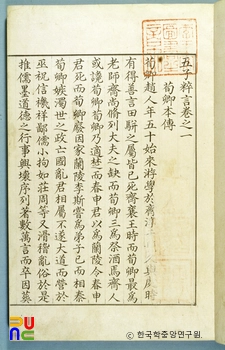 五子粹言卷之一
荀卿本傳
荀卿趙人年五十始來游學於齊淳
有得善言田騈之屬皆已死齊襄王時而荀卿最爲
老師齊尚脩列大夫之缺而荀卿三爲祭酒焉齊人
或讒荀卿荀卿乃適楚而春申君以爲蘭陵令春申
君死而荀卿廢因家蘭陵李斯嘗爲弟子已而相秦
荀卿嫉濁世之政亡國亂君相屬不遂大道而營於
巫祝信禨祥鄙儒小拘如莊周等又滑稽亂俗於是
推儒墨道德之行事興壞序列著數萬言而卒因葬
ⓒ 한국학중앙연구원